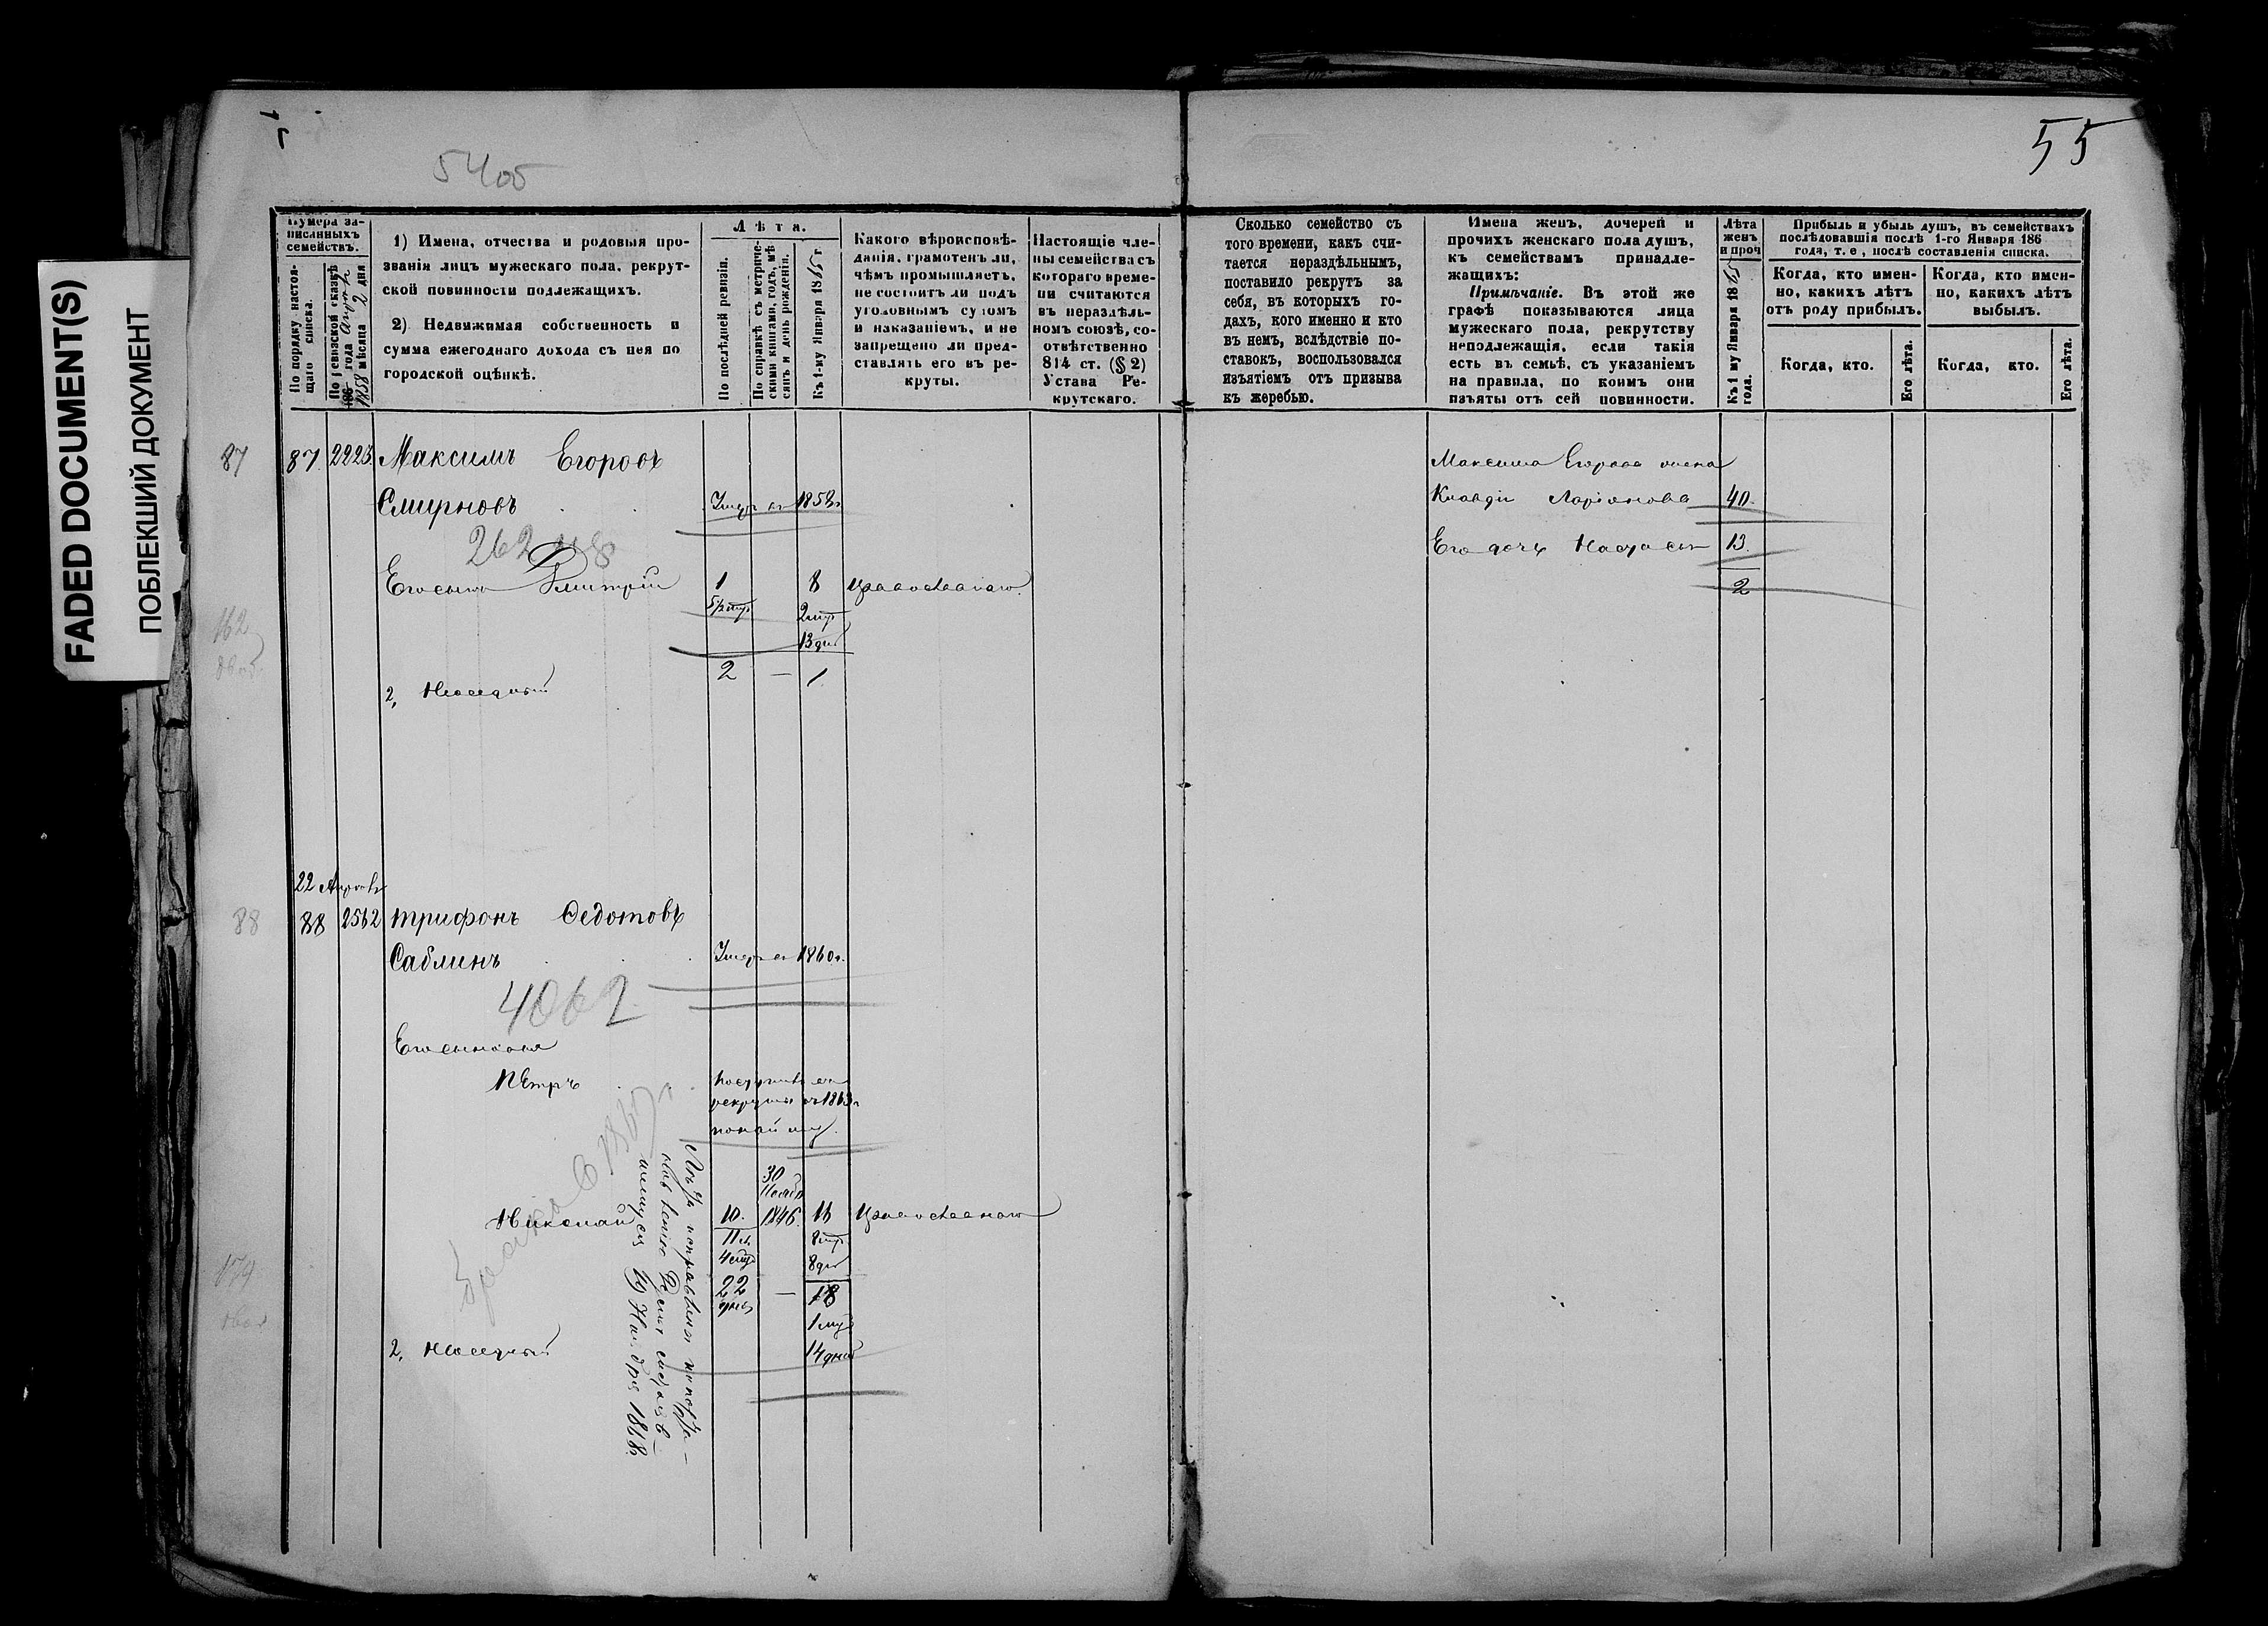 FADED DOCUMENT(S)
ПОБЛЕКШИЙ ДОКУМЕНТ
55
Нумера за-
писанныхъ
семействъ.
По порядку настоя-
щаго списка.
По ревизской сказкѣ
186 года
1858 мѣсяца 2 дня
1) Имена, отчества и родовыя про-
званія лицъ мужескаго пола, рекрут-
ской повинности подлежащихъ.
2) Недвижимая собственность и
сумма ежегоднаго дохода съ нея по
городской оцѣнкѣ.
Лѣта.
По послѣдней ревизіи.
По справкѣ съ метриче-
скими книгами, годъ, мѣ
сяцъ и день рожденія.
Къ 1-му Января 18 г.
Какого вѣроисповѣ-
данія, грамотенъ ли,
чѣмъ промышляетъ,
не состоитъ ли подъ
уголовнымъ судомъ
и наказаніемъ, и не
запрещено ли пред-
ставлять его въ ре-
круты.
Настоящіе чле-
ны семейства съ
котораго време-
ни считаются
въ нераздѣль-
номъ союзѣ, со-
отвѣтственно
814 ст. (§ 2)
Устава Ре-
крутскаго.
Сколько семейство съ
того времени, какъ счи-
тается нераздѣльнымъ,
поставило рекрутъ за
себя, въ которыхъ го-
дахъ, кого именно и кто
въ немъ, вслѣдствіе по-
ставокъ, воспользовался
изъятіемъ отъ призыва
къ жеребью.
Имена женъ, дочерей и
прочихъ женскаго пола душъ,
къ семействамъ принадле-
жащихъ:
Примѣчаніе. Въ этой же
графѣ показываются лица
мужескаго пола, рекрутству
неподлежащія, если такія
есть въ семьѣ, съ указаніемъ
на правила, по коимъ они
изъяты отъ сей повинности.
Лѣта
женъ
и проч
Къ 1 му Января 18
года.
Прибыль и убыль душъ, въ семействахъ
послѣдовавшія послѣ 1-го Января 186
года, т. е., послѣ составленія списка.
Когда, кто имен-
но, какихъ лѣтъ
отъ роду прибылъ.
Когда, кто имен-
но, какихъ лѣтъ
выбылъ.
Когда, кто.
Его лѣта.
Когда, кто.
Его лѣта.
87 87. 2223 Максимъ Егоровъ
Смирновъ
Максима Егорова жена
Клавдія Ларіонова 40.
Его дочь Настасья 13.
2
Его сынъ Дмитрій 1 8 православнаго.
13 дне
2 — 1
2, Неоседлый
22 Апрѣля
88 88 2562 Трифонъ Федотовъ
Саблинъ Умеръ въ 1860г.
4062
Его сыновья
Петръ поступилъ въ
рекруты въ 1863г
30
Ноября
Николай 10. 1846 16 православнаго
8 дне
22 — 18
14 дней
2, Неоседлый